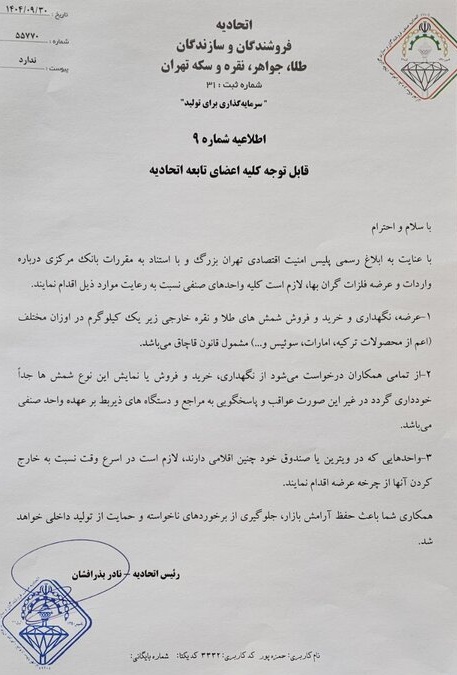 تاریخ : ۱۴۰۴/۰۹/۳۰
شماره : ۵۵۷۷۰
پیوست : ندارد
اتحادیه
فروشندگان و سازندگان
طلا، جواهر، نقره و سکه تهران
شماره ثبت : ۳۱
"سرمایه‌گذاری برای تولید"
اطلاعیه شماره ۹
قابل توجه کلیه اعضای تابعه اتحادیه
با سلام و احترام
با عنایت به ابلاغ رسمی پلیس امنیت اقتصادی تهران بزرگ و با استناد به مقررات بانک مرکزی درباره
واردات و عرضه فلزات گران بها، لازم است کلیه واحدهای صنفی نسبت به رعایت موارد ذیل اقدام نمایند.
۱-عرضه، نگهداری و خرید و فروش شمش های طلا و نقره خارجی زیر یک کیلوگرم در اوزان مختلف
(اعم از محصولات ترکیه، امارات، سوئیس و...) مشمول قانون قاچاق می‌باشد.
۲-از تمامی همکاران درخواست می‌شود از نگهداری، خرید و فروش یا نمایش این نوع شمش ها جداً
خودداری گردد در غیر این صورت عواقب و پاسخگویی به مراجع و دستگاه های ذیربط بر عهده واحد صنفی
می‌باشد.
۳-واحدهایی که در ویترین یا صندوق خود چنین اقلامی دارند، لازم است در اسرع وقت نسبت به خارج
کردن آنها از چرخه عرضه اقدام نمایند.
همکاری شما باعث حفظ آرامش بازار، جلوگیری از برخوردهای ناخواسته و حمایت از تولید داخلی خواهد
شد.
رئیس اتحادیه – نادر بذرافشان
نام کاربری: حمزه پور کد کاربری: ۳۳۳۲ کد یکتا: شماره بایگانی: